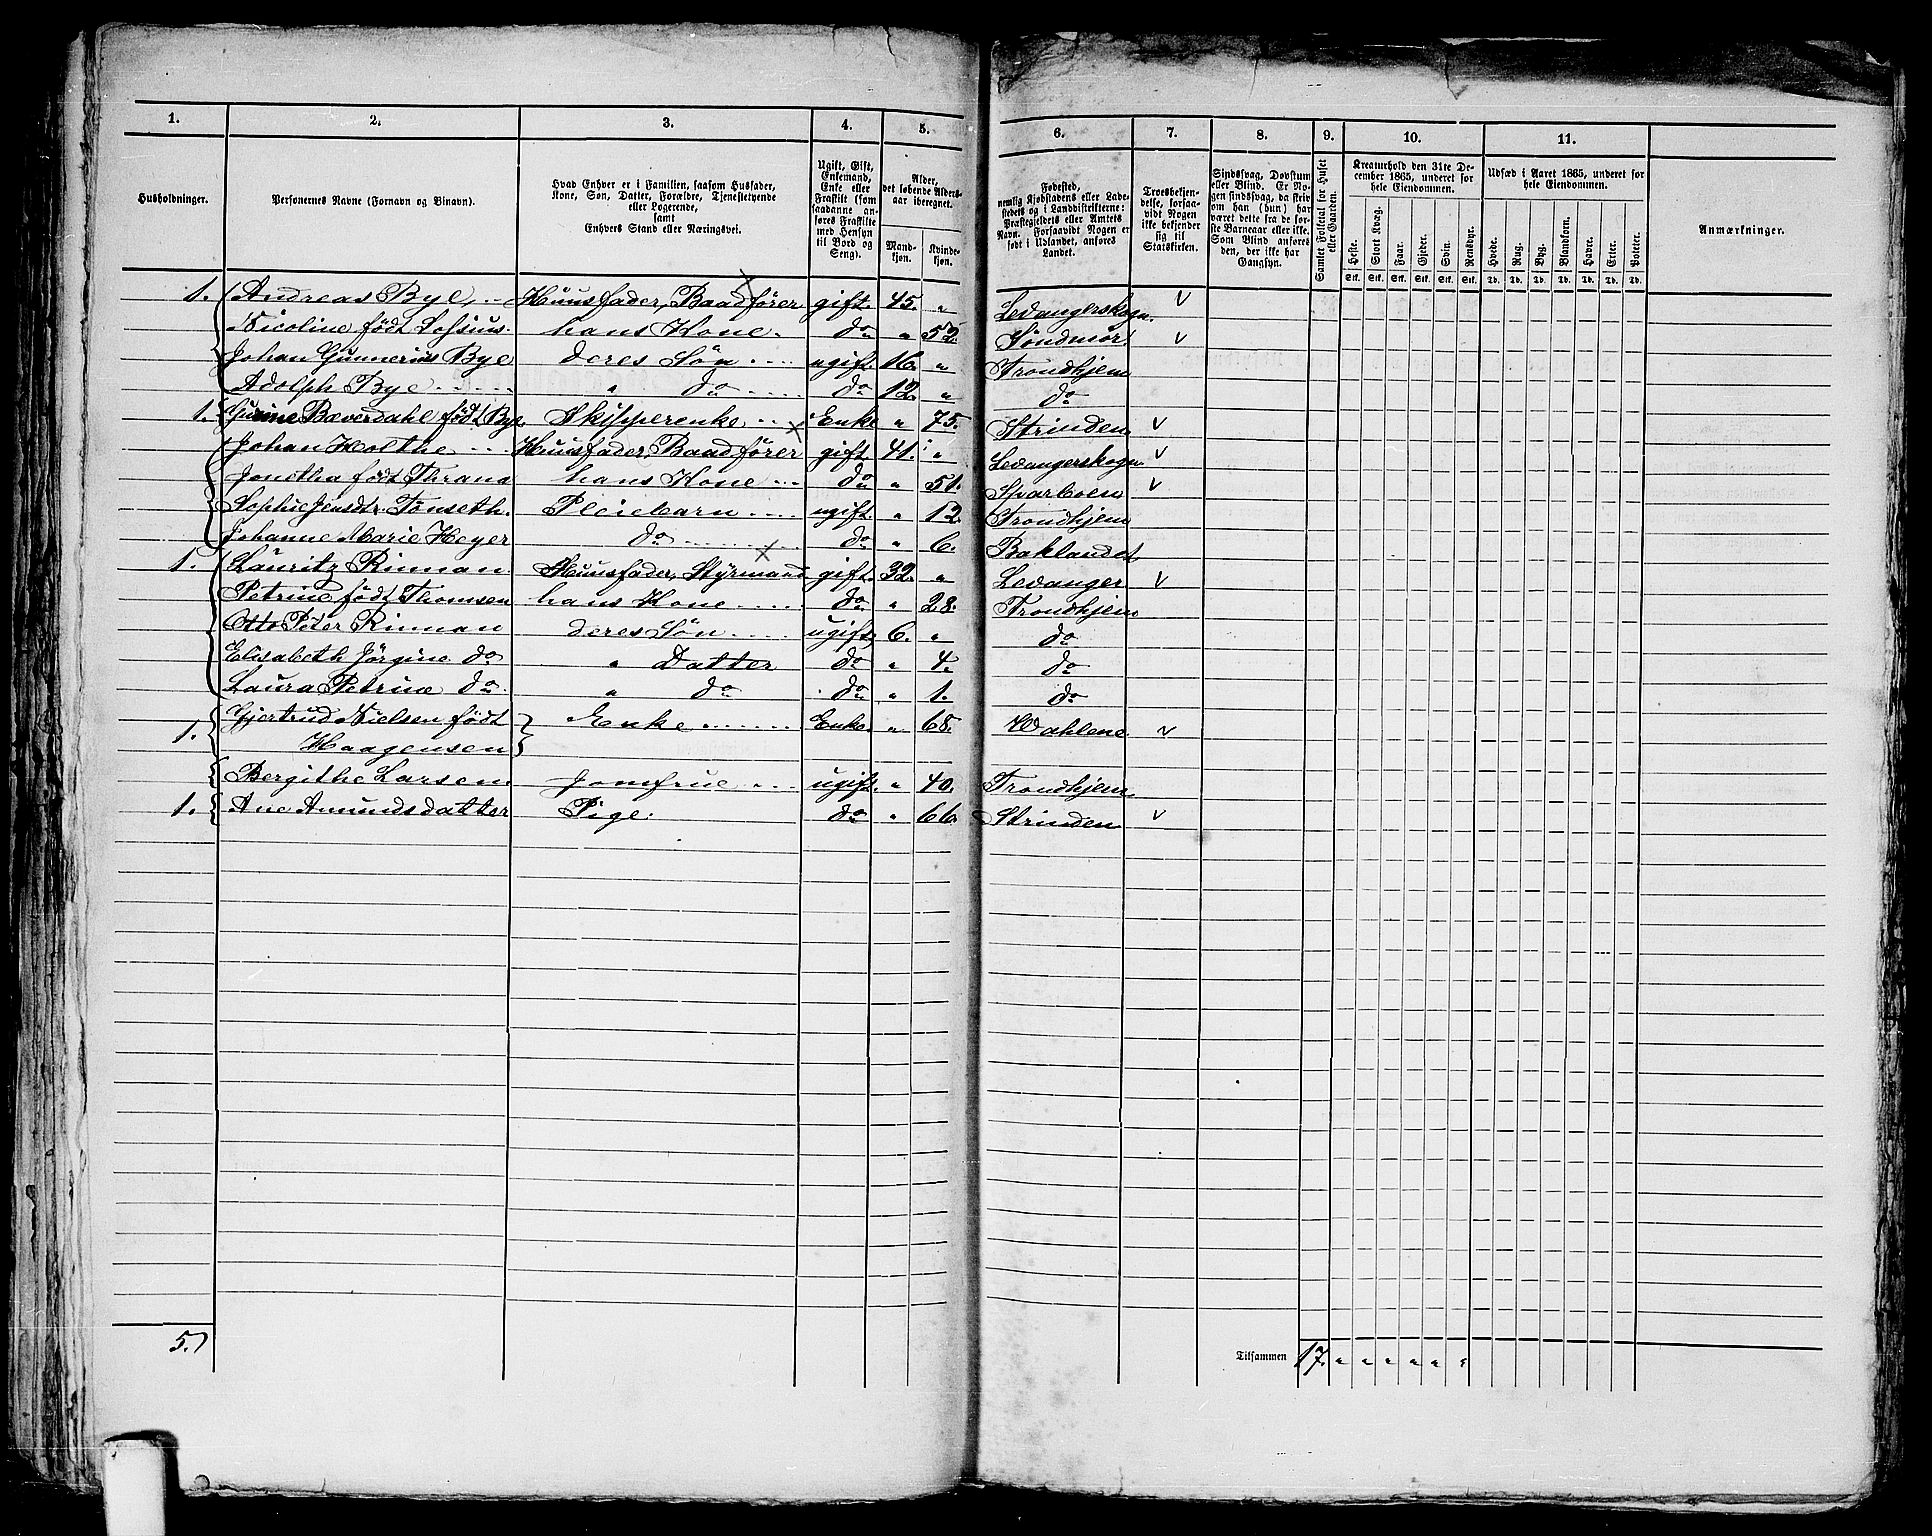 1. 2. 3. 4. 5. 6. 7. 8. 9. 10. 11.
Husholdninger.
Personernes Navne (Fornavn og Binavn).
Hvad Enhver er i Familien, saasom Husfader,
Kone, Søn, Datter, Forældre, Tjenestetyende
eller Logerende,
samt
Enhvers Stand eller Næringsvei.
Ugift, Gift,
Enkemand,
Enke eller
Fraskilt (som
saadanne an-
føres Fraskilte
med Hensyn
til Bord og
Seng).
Alder,
det løbende Alders-
aar iberegnet.
Mand-
kjøn.
Kvinde-
kjøn.
Fødested,
nemlig Kjøbstadens eller Lade-
stedets og i Landdistrikterne:
Præstegjeldets eller Amtets
Navn. Forsaavidt Nogen er
født i Udlandet, anføres
Landet.
Troesbekjen-
delse, forsaa-
vidt Nogen
ikke bekjender
sig til
Statskirken.
Sindssvag, Døvstum
eller Blind. Er No-
gen sindssvag, da skri-
ves, om han (hun) har
været dette fra de før-
ste Barneaar eller ikke.
Som Blind anføres
den, der ikke har
Gangsyn.
Samlet Folketal for Huset
eller Gaarden.
Kreaturhold den 31te De-
cember 1865, underet for
hele Eiendommen.
Heste. Stort Kvæg. Faar. Gjeder. Svin. Rensdyr.
Stk. Stk. Stk. Stk. Stk. Stk.
Udsæd i Aaret 1865, underet for
hele Eiendommen.
Hvede. Rug. Byg. Blandkorn. Havre. Erter. Poteter.
Td. Td. Td. Td. Td. Td. Td.
Anmærkninger.
1. Andreas Bye, Huusfader, Baadfører gift 45. " Levangerskogn. v
Nicoline født Lossius. hans Kone. do " 52. Søndmør v
Johan Gunnerius Bye deres Søn ugift. 16. " Trondhjem
Adolph Bye " do do 12. " do
1. Gurine Bæverdahl født Bye. Skipperenke Enke " 75. Strinden v
Johan Holthe Huusfader, Baadfører gift 41. " Levangerskogn. v
Jonetha født Thrana hans Kone do " 51. Sparboen v
Sophie Jensdtr. Tønseth. Pleiebarn ugift. " 12. Trondhjem
Johanne Marie Heyer do do " 6. Baklandet
1. Lauritz Rinnan Huusfader, Styrmand gift. 32. " Levanger v
Petrine født Thomsen hans Kone do " 28. Trondhjem
Otto Peter Rinnan deres Søn ugift, 6. " do
Elisabeth Jørgine do " Datter do " 4. do
Laura Petrine do. " do do " 1. do
1. Gjertrud Nielsen født Enke Enke. " 68. Wahlene v
Haagensen
Bergithe Larsen Jomfrue ugift. " 40. Trondhjem.
1. Ane Amundsdatter Pige. do " 66. Strinden v
5.
Tilsammen 17. " " " " " "